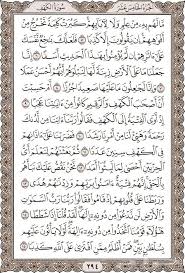 الجزء الخامس عشر سورة الكهف
مَّا لَهُم بِهِۦ مِنْ عِلْمٍ وَلَا لِءَابَآئِهِمْ كَبُرَتْ كَلِمَةً تَخْرُجُ مِنْ
أَفْوَٰهِهِمْ إِن يَقُولُونَ إِلَّا كَذِبًا ٥ فَلَعَلَّكَ بَٰخِعٌ نَّفْسَكَ
عَلَىٰٓ ءَاثَٰرِهِمْ إِن لَّمْ يُؤْمِنُوا۟ بِهَٰذَا ٱلْحَدِيثِ أَسَفًا ٦ إِنَّا
جَعَلْنَا مَا عَلَى ٱلْأَرْضِ زِينَةً لَّهَا لِنَبْلُوَهُمْ أَيُّهُمْ أَحْسَنُ عَمَلًا
٧ وَإِنَّا لَجَٰعِلُونَ مَا عَلَيْهَا صَعِيدًا جُرُزًا ٨ أَمْ حَسِبْتَ
أَنَّ أَصْحَٰبَ ٱلْكَهْفِ وَٱلرَّقِيمِ كَانُوا۟ مِنْ ءَايَٰتِنَا عَجَبًا ٩
إِذْ أَوَى ٱلْفِتْيَةُ إِلَى ٱلْكَهْفِ فَقَالُوا۟ رَبَّنَآ ءَاتِنَا مِن لَّدُنكَ رَحْمَةً
وَهَيِّئْ لَنَا مِنْ أَمْرِنَا رَشَدًا ١٠ فَضَرَبْنَا عَلَىٰٓ ءَاذَانِهِمْ
فِى ٱلْكَهْفِ سِنِينَ عَدَدًا ١١ ثُمَّ بَعَثْنَٰهُمْ لِنَعْلَمَ أَىُّ
ٱلْحِزْبَيْنِ أَحْصَىٰ لِمَا لَبِثُوٓا۟ أَمَدًا ١٢ نَّحْنُ نَقُصُّ عَلَيْكَ نَبَأَهُم
بِٱلْحَقِّ إِنَّهُمْ فِتْيَةٌ ءَامَنُوا۟ بِرَبِّهِمْ وَزِدْنَٰهُمْ هُدًى ١٣
وَرَبَطْنَا عَلَىٰ قُلُوبِهِمْ إِذْ قَامُوا۟ فَقَالُوا۟ رَبُّنَا رَبُّ ٱلسَّمَٰوَٰتِ
وَٱلْأَرْضِ لَن نَّدْعُوَا۟ مِن دُونِهِۦٓ إِلَٰهًا لَّقَدْ قُلْنَآ إِذًا شَطَطًا ١٤
هَٰٓؤُلَآءِ قَوْمُنَا ٱتَّخَذُوا۟ مِن دُونِهِۦٓ ءَالِهَةً لَّوْلَا يَأْتُونَ عَلَيْهِم
بِسُلْطَٰنٍۭ بَيِّنٍ فَمَنْ أَظْلَمُ مِمَّنِ ٱفْتَرَىٰ عَلَى ٱللَّهِ كَذِبًا ١٥
٢٩٤